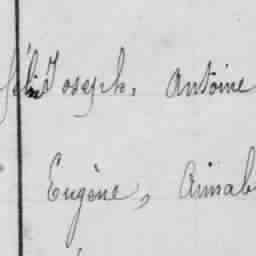 Joseph, Antoine
Eugène, Aimab